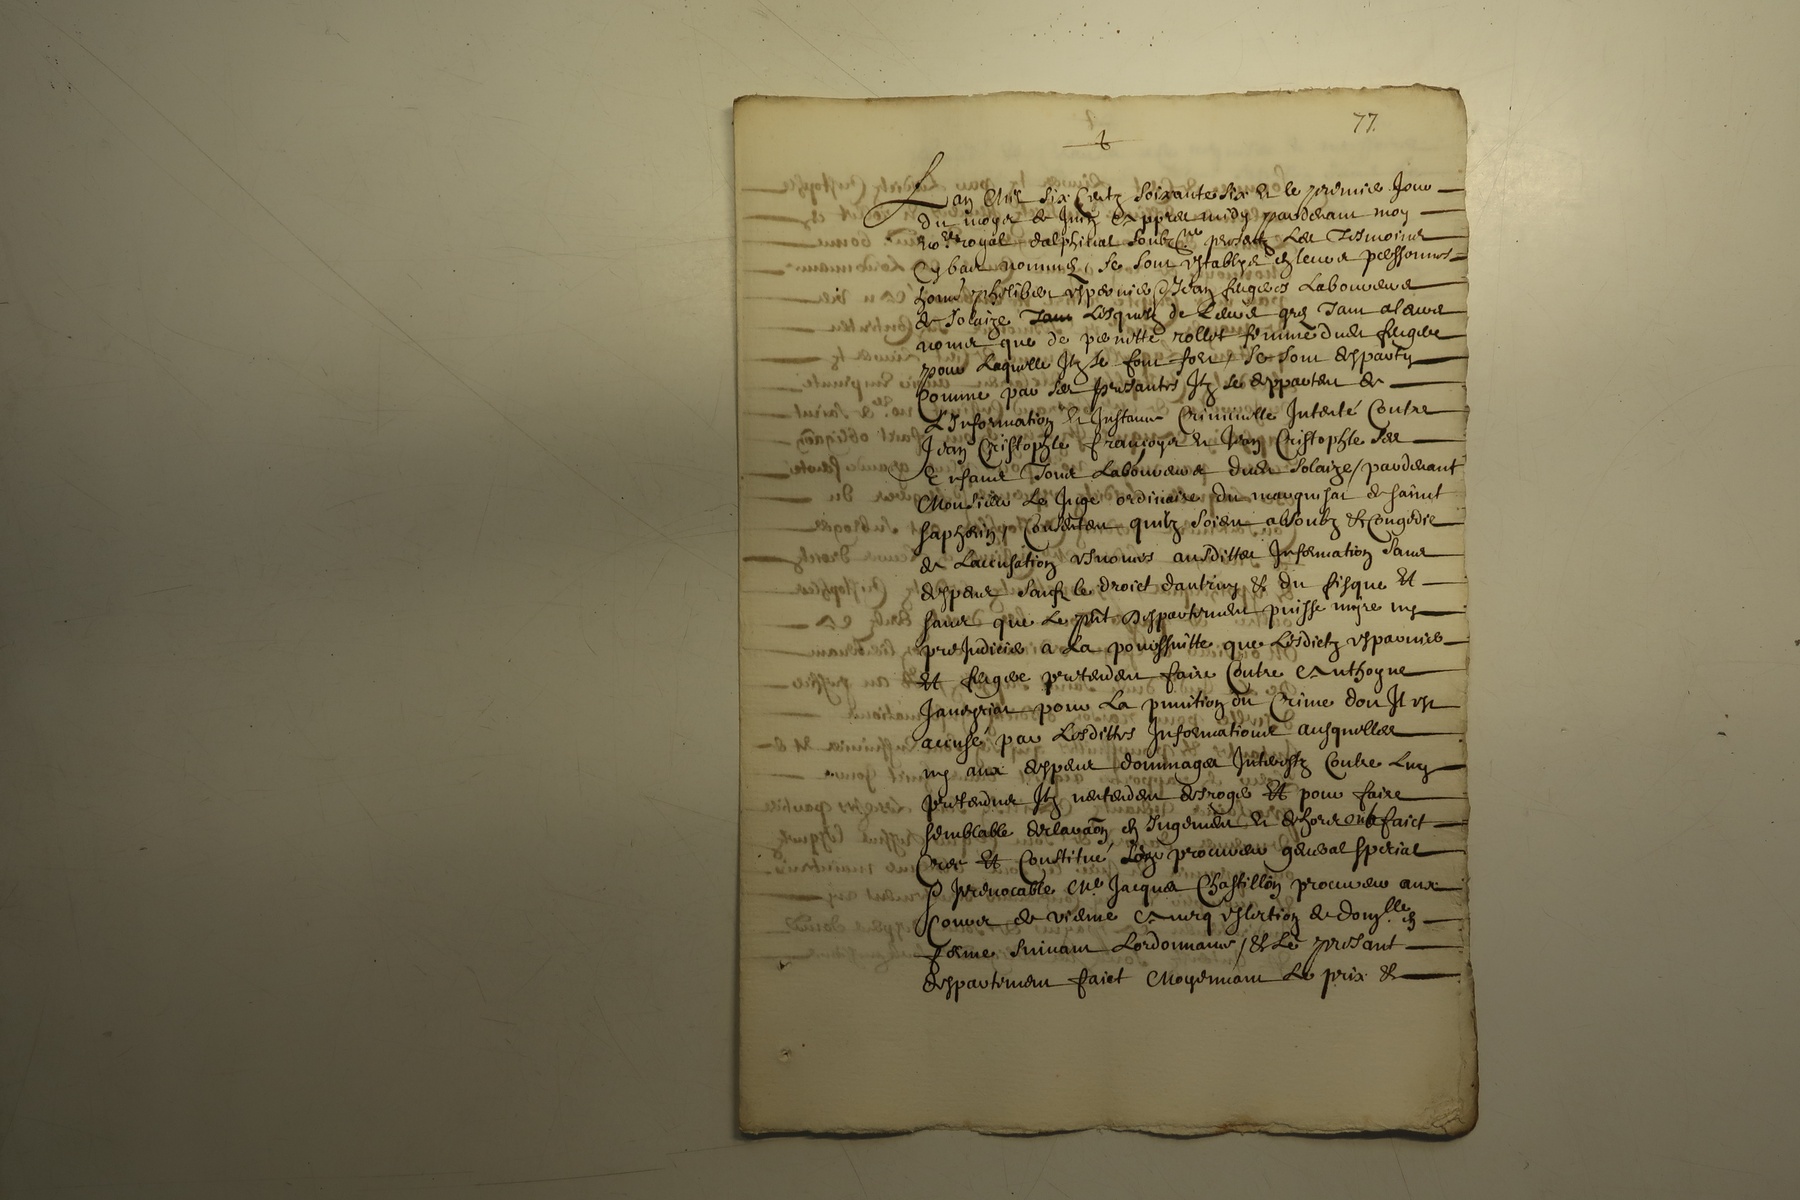 77.
Lan Mil six Centz soixante six et le premier Jour
du moys de Juing apprés midy pardevant moy
no.re royal dalphinal soubz.ne presentz Les Tesmoins
Cy bas nommés, se sont establys en leurs perssonnes
honn.e philiber esparnier, Jean fergier Laboureurs
de Solaize Lesquelz de Leurs gres Tant a leurs
noms que de pernette rollet femme dudit fergier
pour Laquelle Ilz se font fort, se sont desparty
Comme par ses presantes Ilz se departent de
L'Information et Instance Criminelle Intenté Contre
Jean Cristophle francoys et Jean Cristophle ses
Enfans Tous Laboureurs dudit Solaize, pardevant
Monsieur Le Juge ordinaire du marquisat de saint
saphorin, Consentent quilz soient absoubz et Congedié
de Laccusation esnoncés ausdittes Information sans
despens sauf le droict dautruy et du fisque Et
sans que Le pnt Despartement puisse nuyre ny
preJudicier a La pourssuitte que Lesdictz esparnier
Et fergier pretendent faire Contre Anthoyne
Janeyriat pour La punition du Crime dont Il est
accusé par Lesdittes Informations ausquelles
ny aux despens dommages Interestz Contre Luy
pretendus Ilz nentendent desroger Et pour faire
semblable declaraon en Jugement et dehors ont faict
Creé Et Constitué procureur general special
Irrevocable Me Jacques Chastillon procureur aux
Cours de vienne Avecq eslection de domlle en
forme suivant Lordonnance, et Le presant
despartement faict Moyennant Le prix et